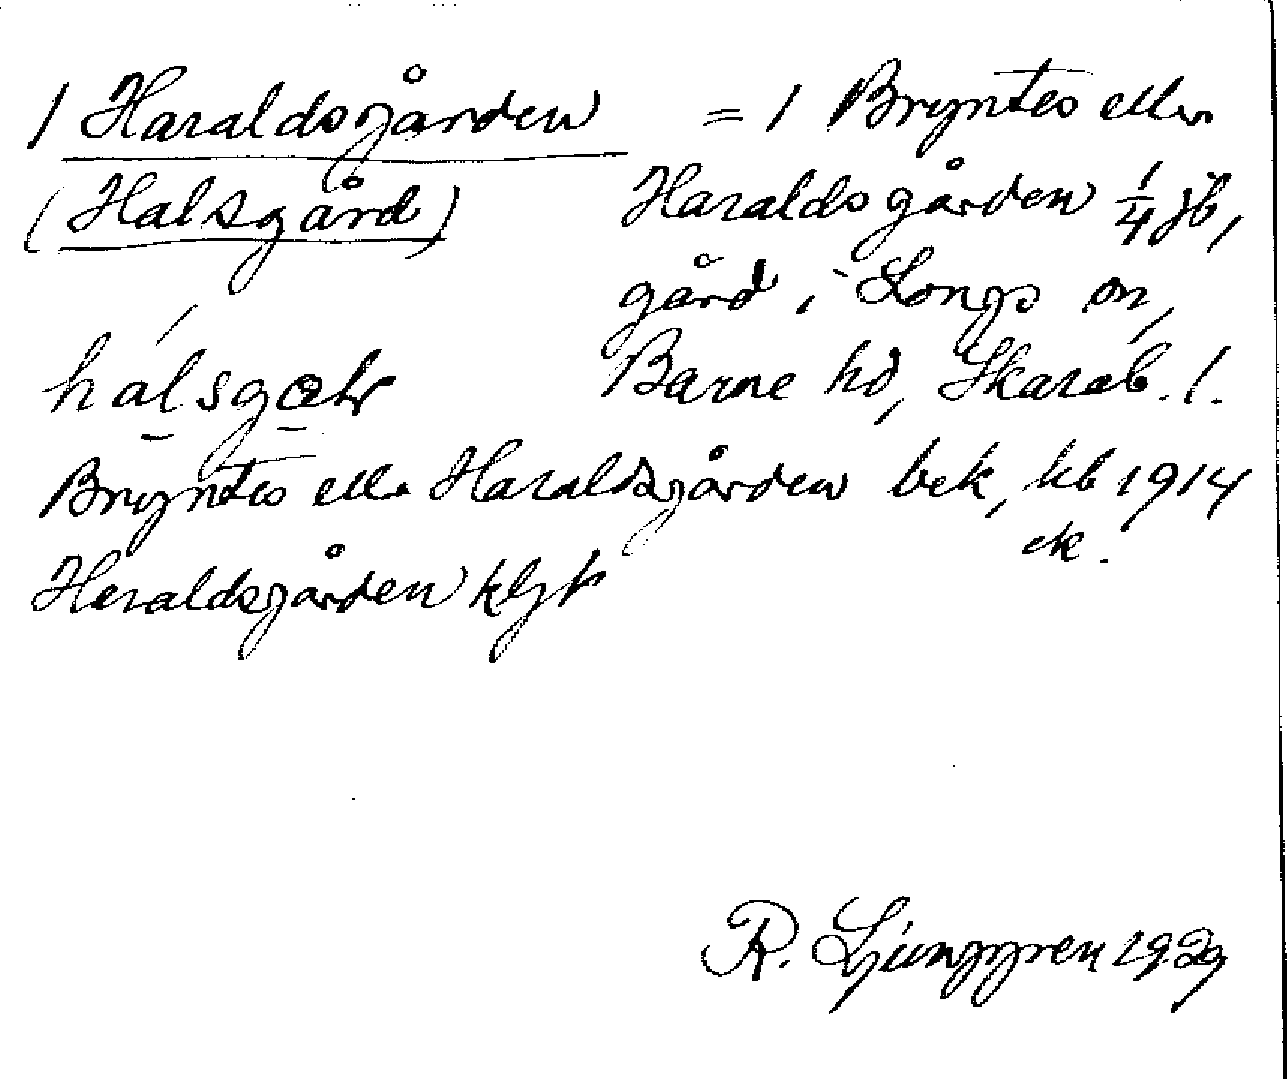 1 Haraldsgården
(Halsgård)
hálsgæɫr
= 1 Bryntes eller
Haraldsgården 1/4 jb,
gård i Longs sn,
Barne hd, Skarab. l.
Bryntes elle Haraldsgården bek, kb 1914
Haraldsgården klgt
ek.
R. Ljunggren 1929